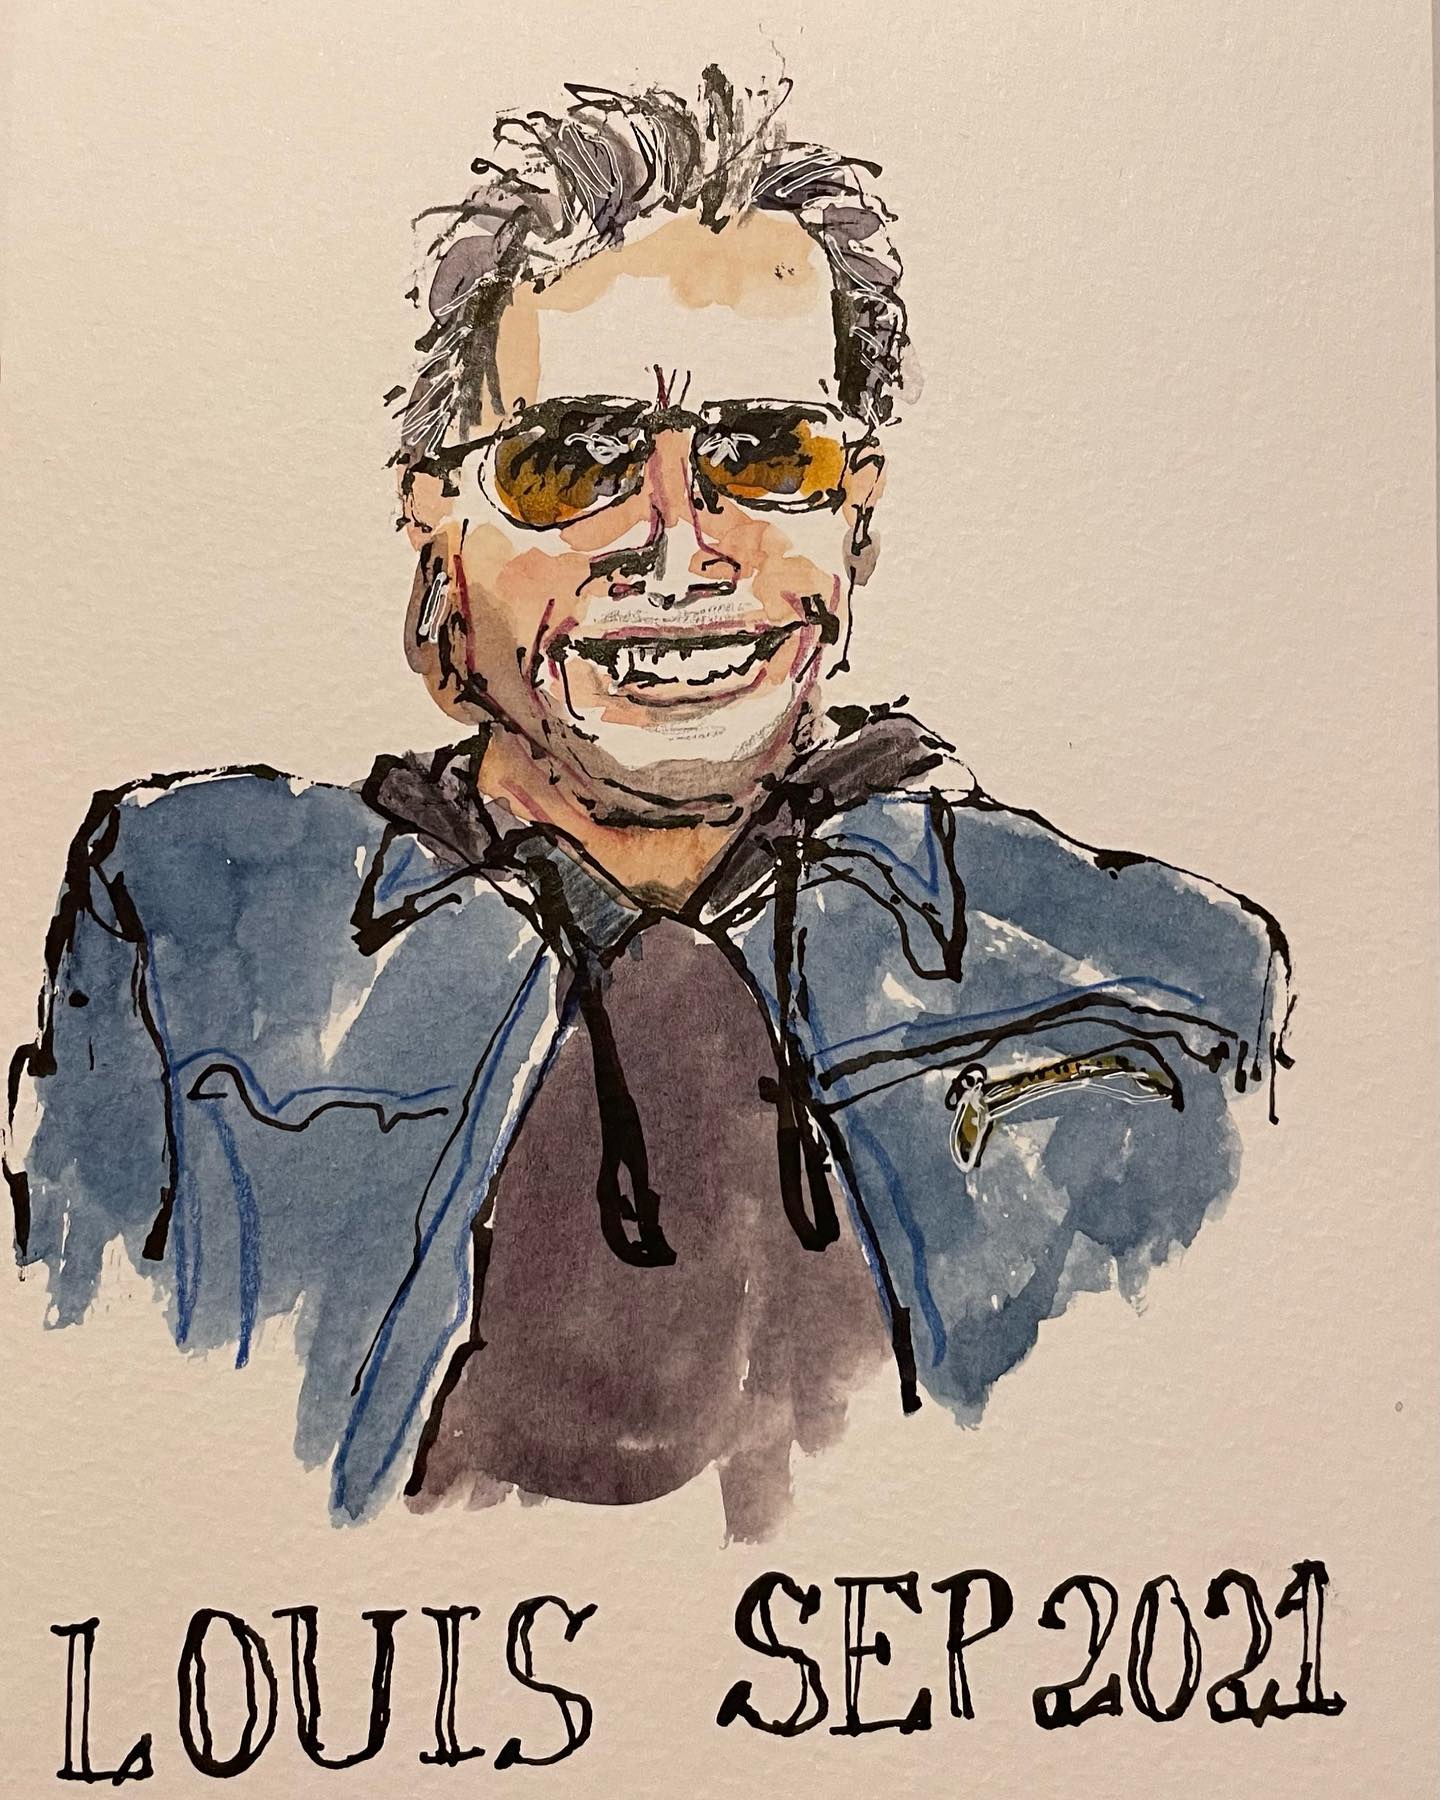 LOUIS SEP 2021